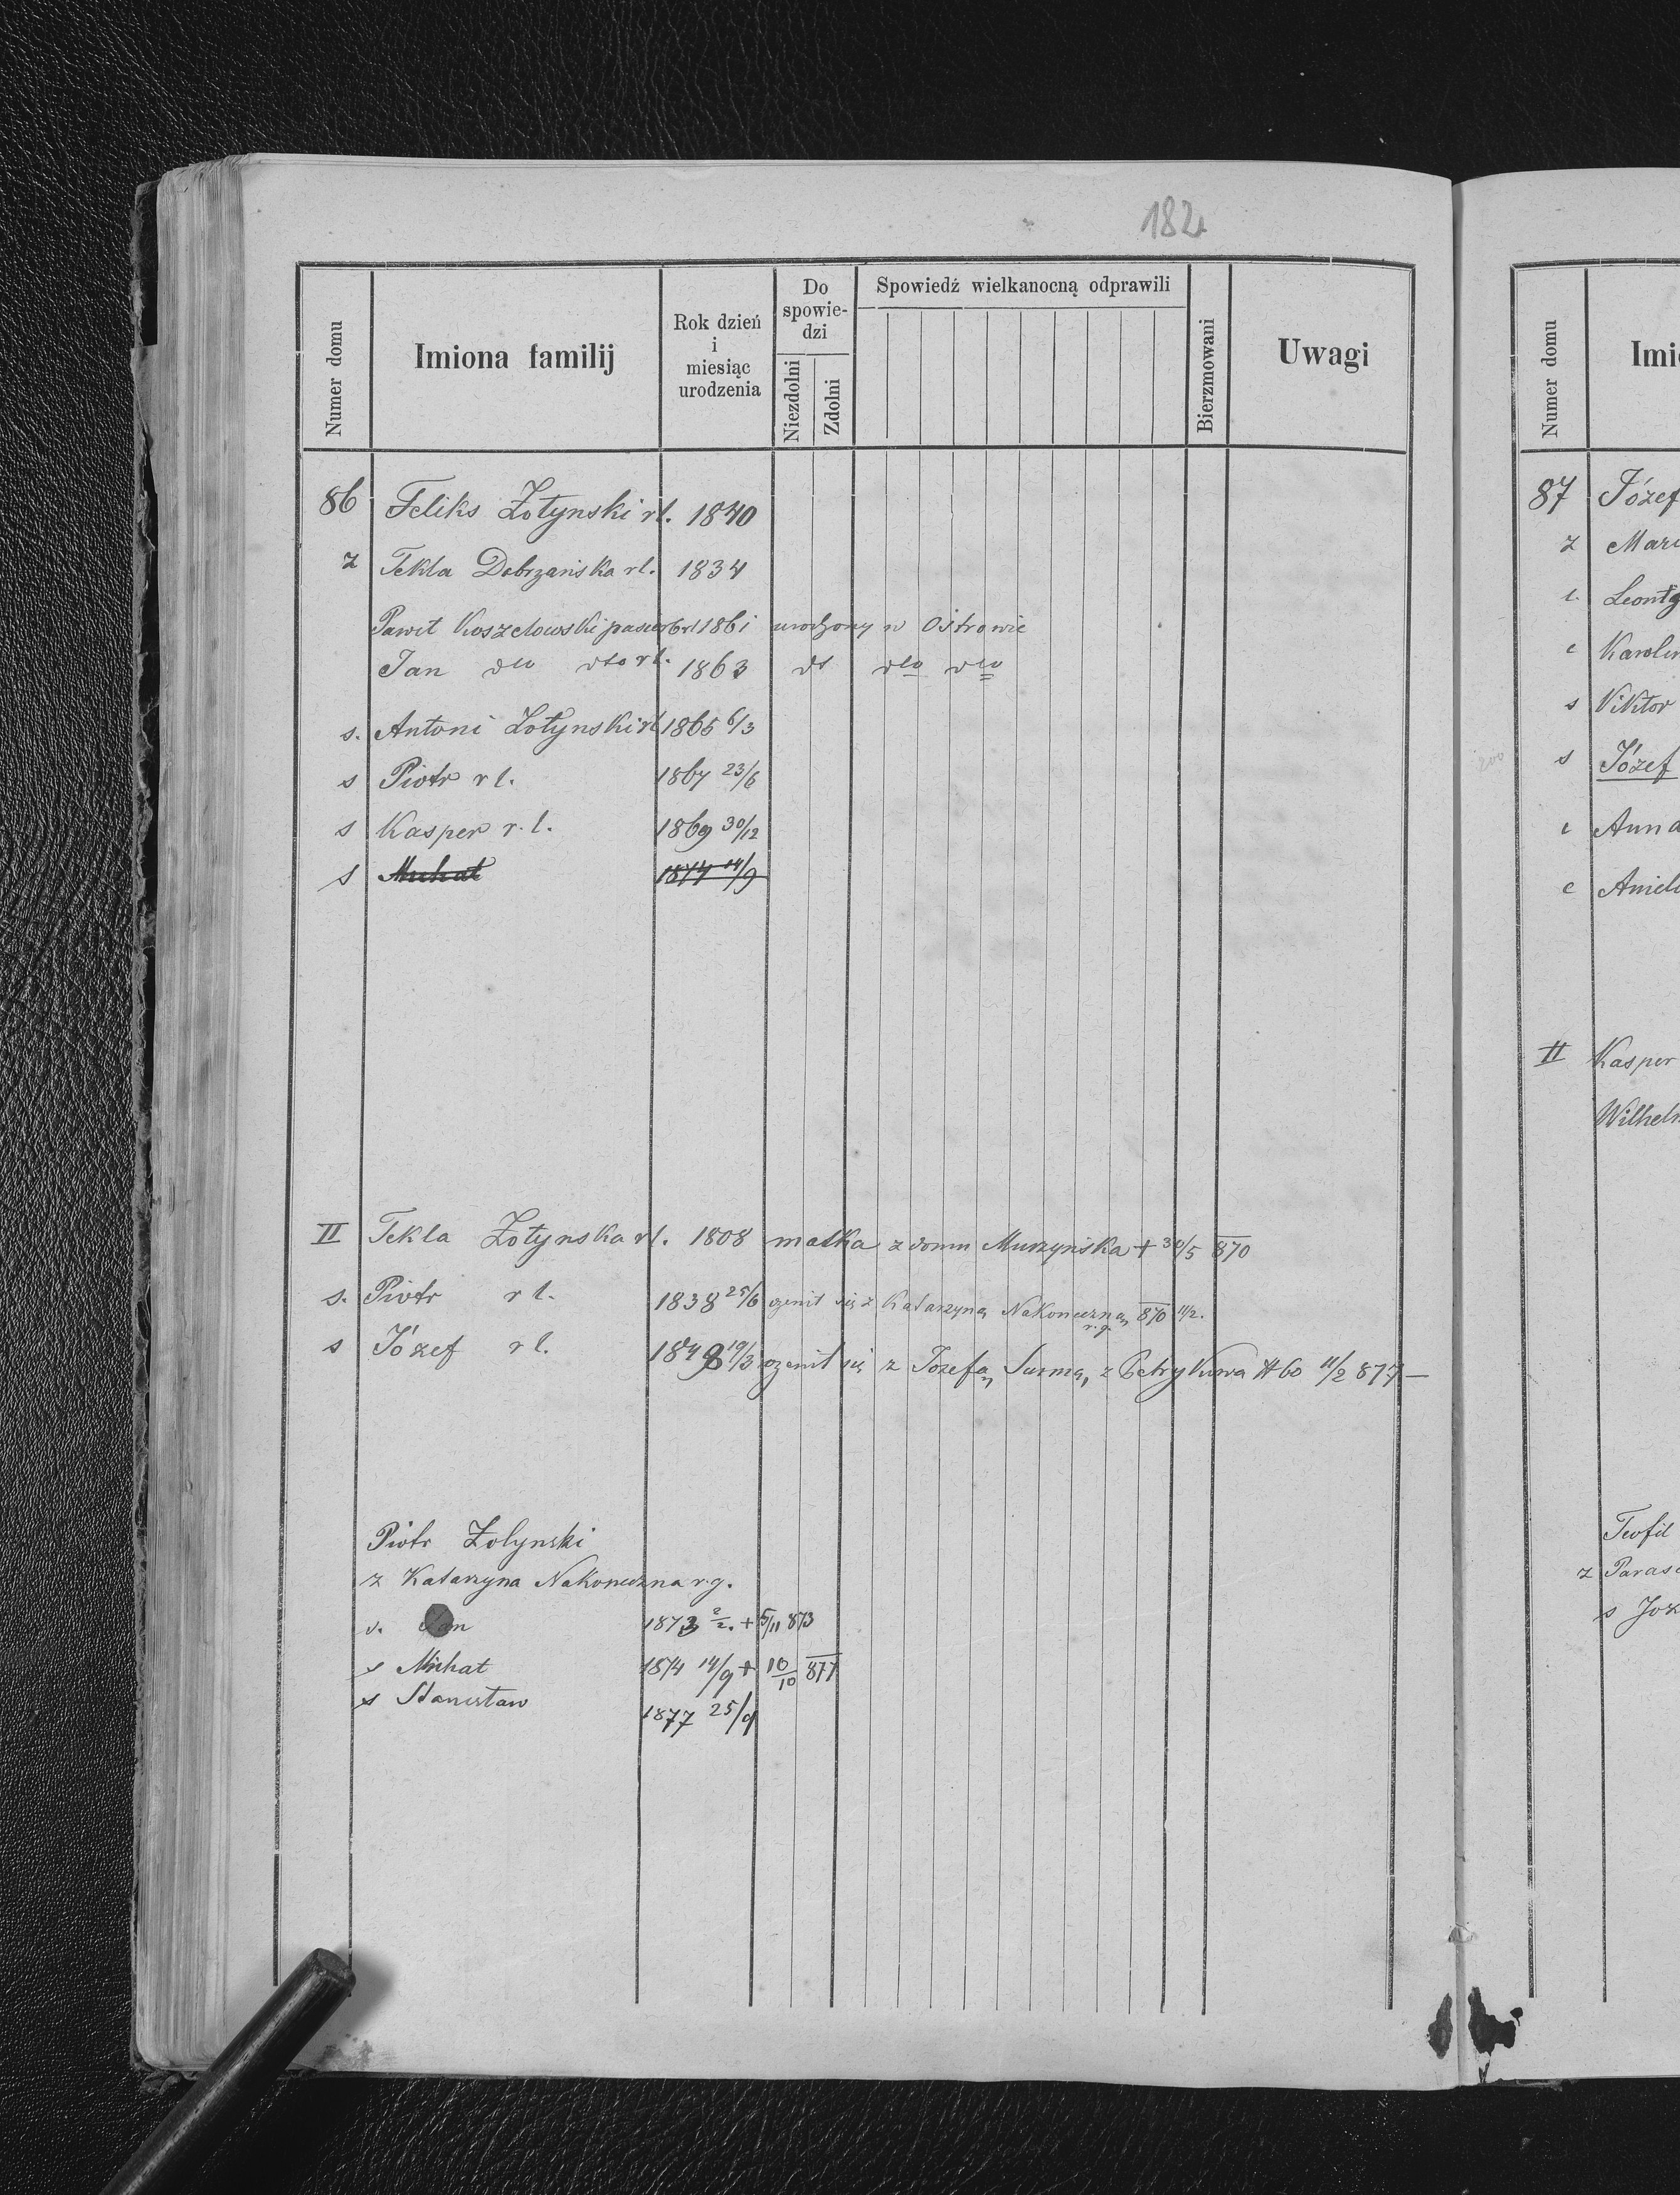 182
Numer domu
Imiona familij
Rok dzień i miesiąc urodzenia
Do spowiedzi
Niezdolni
Zdolni
Spowiedź wielkanocną odprawili
Bierzmowani
Uwagi
86 Feliks Żołynski rl. 1840
z Tekla Dobrzańska rl. 1834
Paweł Koszelowski pasierb rl 1861 urodzony w Ostrowie
Jan dto dto rl. 1863 dt dto dto
s. Antoni Żołynski rl 1865 6/3
s Piotr rl. 1867 23/6
s Kasper r.l. 1869 30/12
s Michał 1874 14/9
II Tekla Żołynska rl. 1808 matka z domu Murzyńska + 30/5 870
s. Piotr rl. 1838 25/6 ożenił się z Katarzyną Nakoneczną r.g. 870 11/2.
s Józef rl. 1848 19/3 ożenił się z Józefą Surmą, z Petrykowa # 60 11/2 877 —
Piotr Żołynski
z Katarzyna Nakoneczna r.g.
s. Jan 1873 2/2. + 5/11 873
s Michał 1874 14/9 + 10/10 877
s Stanisław 1877 25/9
Numer domu
Imi
87 Józef
z Mar
c. Leont
c Karolin
s Viktor
200
s Józef
c Anna
c Aniel
II Kasper
Wilhelm
Teofil
z Paras
s Józ